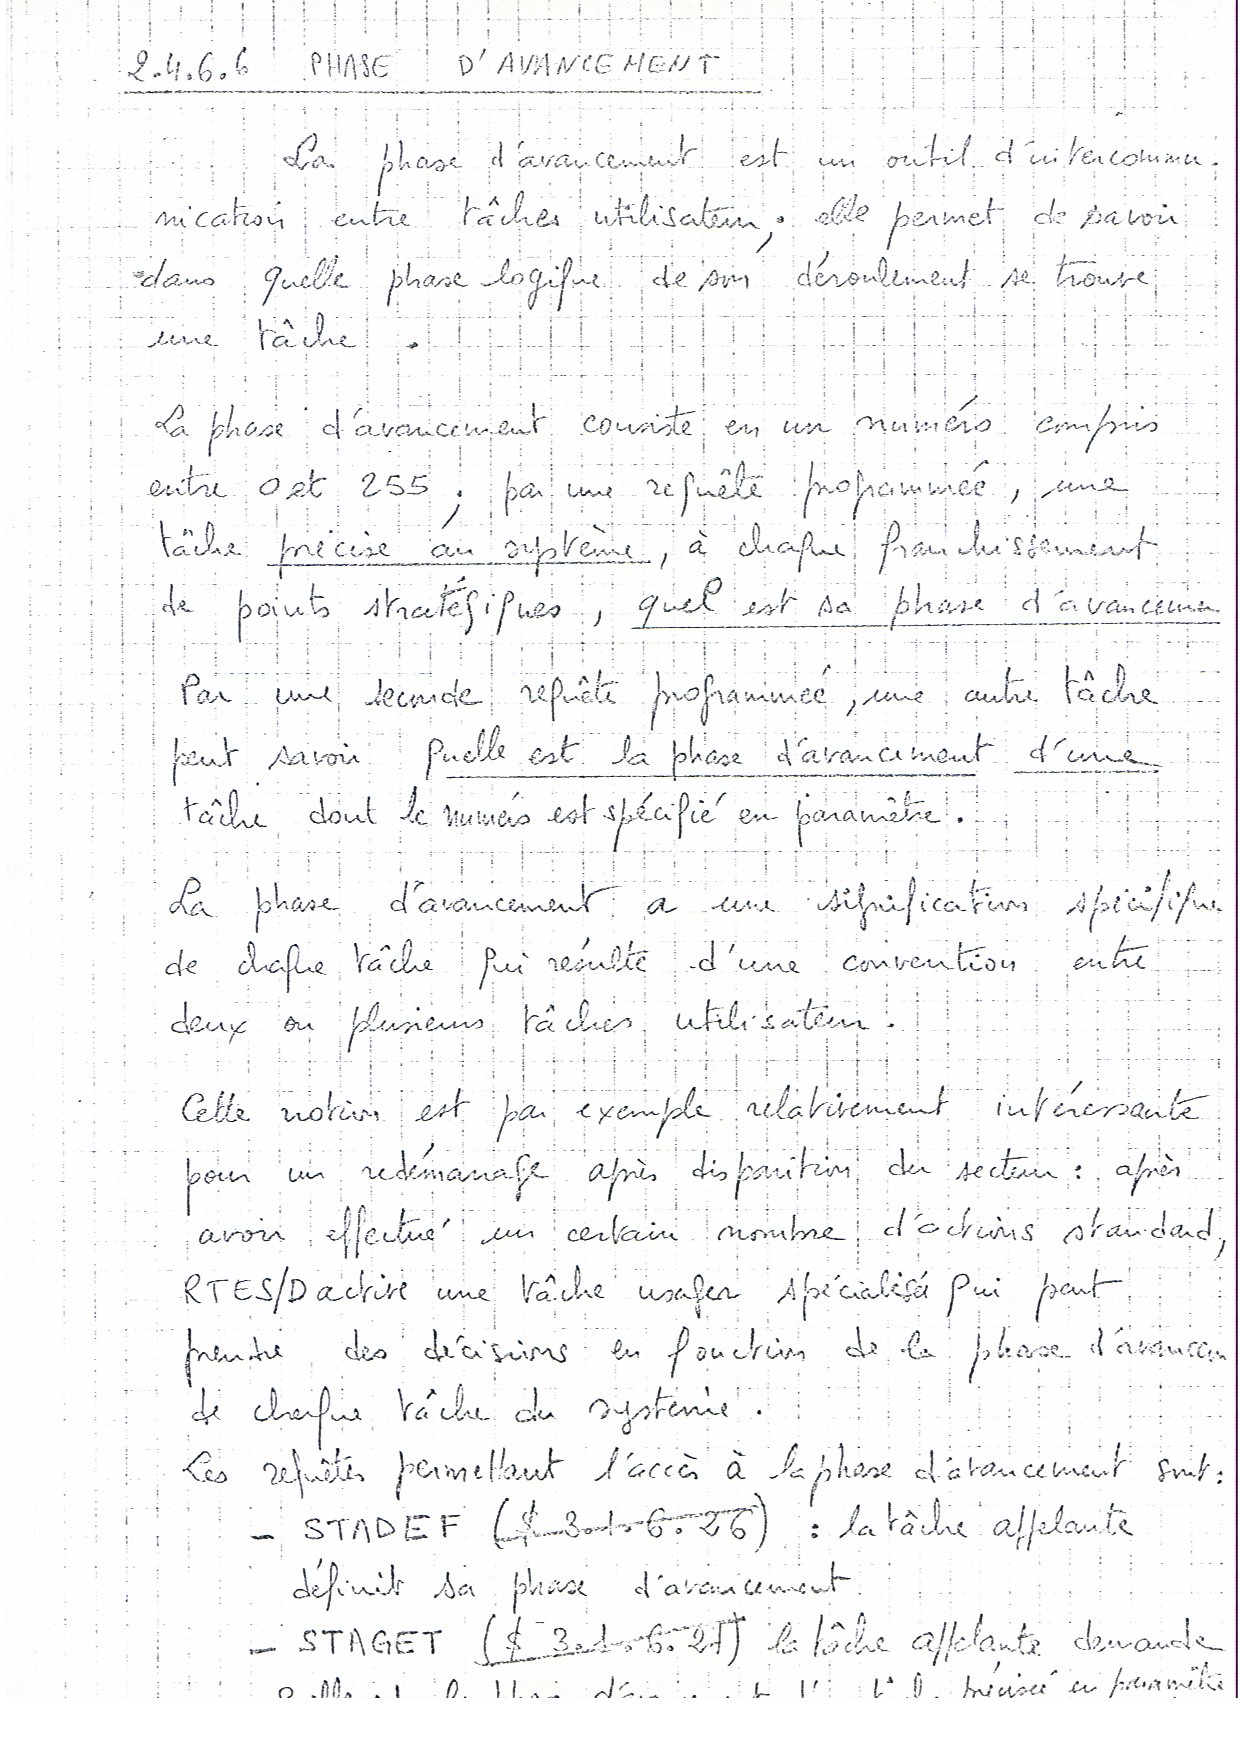 2.4.6.6 PHASE D'AVANCEMENT
La phase d'avancement est un outil d'intercommu-
nication entre tâches utilisateur; elle permet de savoir
dans quelle phase logique de son déroulement se trouve
une tâche.
La phase d'avancement consiste en un numéro compris
entre 0 et 255; par une requête programmée, une
tâche précise au système, à chaque franchissement
de points stratégiques, quel est sa phase d'avancemen
Par une seconde requête programmée, une autre tâche
peut savoir quelle est la phase d'avancement d'une
tâche dont le numéro est spécifié en paramètre.
La phase d'avancement a une signification spécifique
de chaque tâche qui résulte d'une convention entre
deux ou plusieurs tâches utilisateur.
Cette notion est par exemple relativement intéressante
pour un redémarrage après disparition du secteur : après
avoir effectué un certain nombre d'actions standard,
RTES/D active une tâche usager spécialisé qui peut
prendre des décisions en fonction de la phase d'avancem
de chaque tâche du système.
Les requêtes permettant l'accès à la phase d'avancement sont:
- STADEF ($ 3.1.6.26) : la tâche appelante
définit sa phase d'avancement
- STAGET ($ 3.1.6.27) la tâche appelante demande
précisé en paramètre